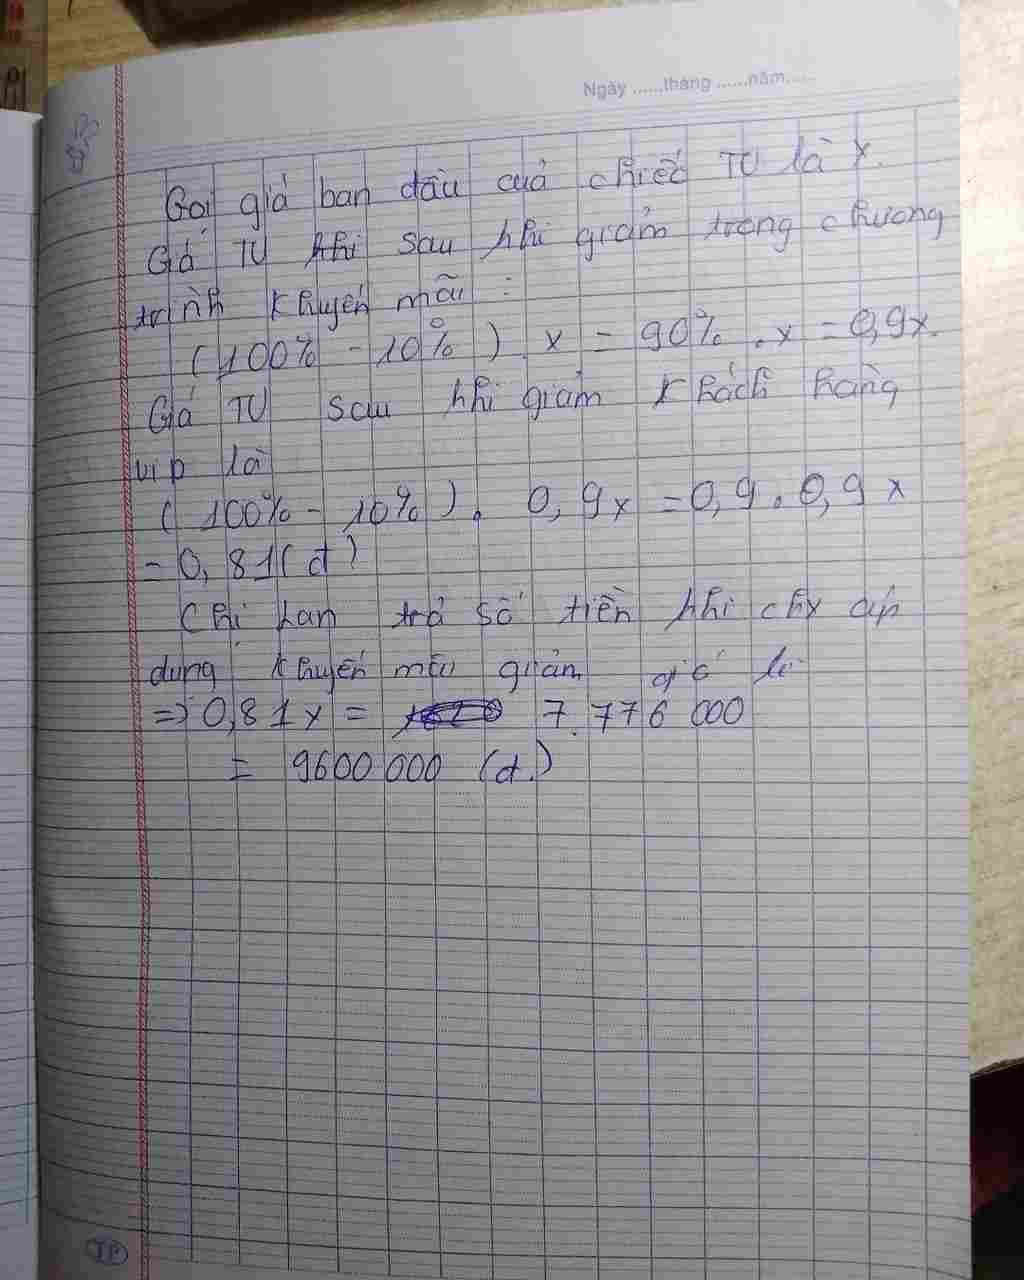 Ngày ......tháng ......năm......
Gọi giá ban đầu cuả chiếc TV là x.
Giá TV khi sau khi giảm trong chương
trình khuyến mãi :
(100% - 10%) . x = 90% . x = 0,9x.
Giá TV sau khi giảm khách hàng
vip là
(100% - 10%). 0,9x = 0,9.0,9x
= 0,81(đ)
Chị Lan trả số tiền khi áp
dụng khuyến mãi giảm giá là
=> 0,81x = 7.776 000
= 9600 000 (đ.)
TP